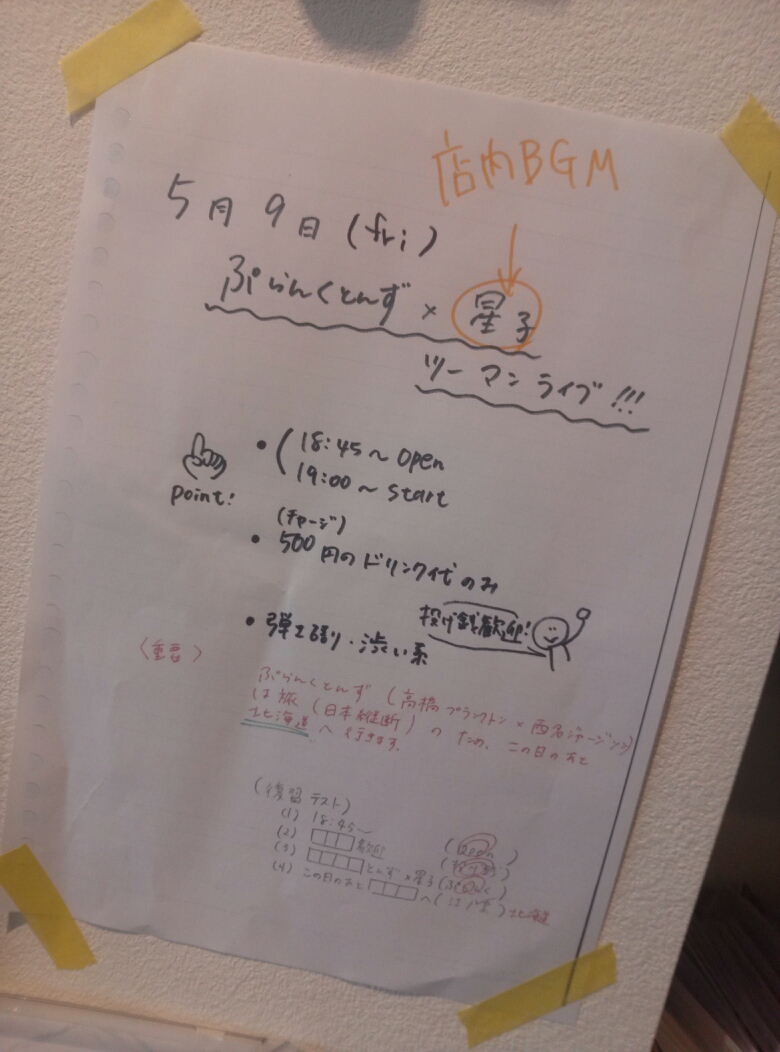 店内BGM
5月9日(fri)
ぷらんくとんず×星子
ツーマンライブ!!!
point!
・(18:45~Open
19:00~Start
(チャージ)
・500円のドリンク代のみ
投げ銭歓迎!
・弾き語り・渋い系
〈重要〉
ぷらんくとんず(高橋プランクトン×西名ジャージ
は旅(日本縦断)のため、この日のあと
北海道へ行きます。
(復習テスト)
(1) 18:45~ (Open)
(2) 歓迎 (投げ銭)
(3) とんず×星子 (ぷらんく)
(4) この日のあと へ( )北海道